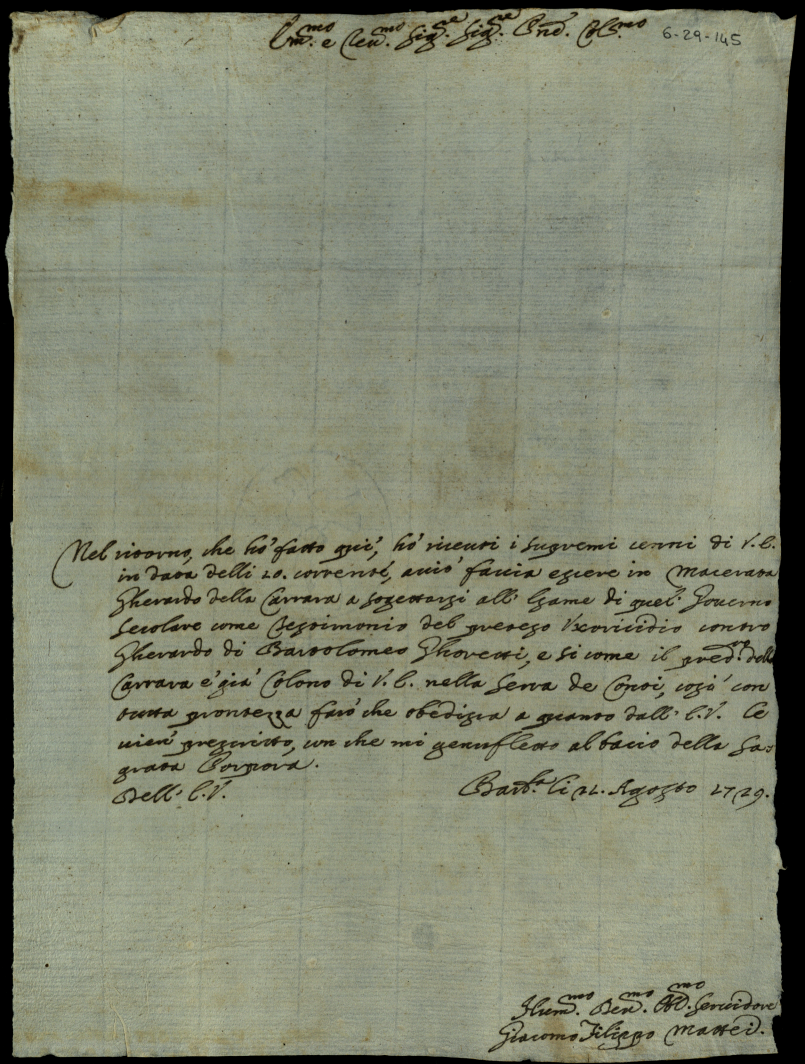 Em.mo e Reu.mo Sig.re Sig.re Pnē. Col.mo 6-29-145
Nel ritorno, che hò fatto quì, hò riceuti i supremi cenni di V.E.
in data delli 20. corrente, acciò faccia essere in Macerata
Gherardo della Carrara a sogettarsi all' Esame di quel Gouerno
Secolare come testimonio del preteso Vxoricidio contro
Gherardo di Bartolomeo Ghoretti, e si come il pred.to della
Carrara è già Colono di V.E. nella Serra de Conti, così con
tutta prontezza farò che obedisca a quanto dall' E.V. le
uien prescritto, con che mi genufletto al bacio della Sa-
grata Porpora.
Dell' E.V. Barb.ra li 22. Agosto 1729.
Hum.mo Deu.mo Obl.mo Seruidore
Giacomo Filippo Mattei.